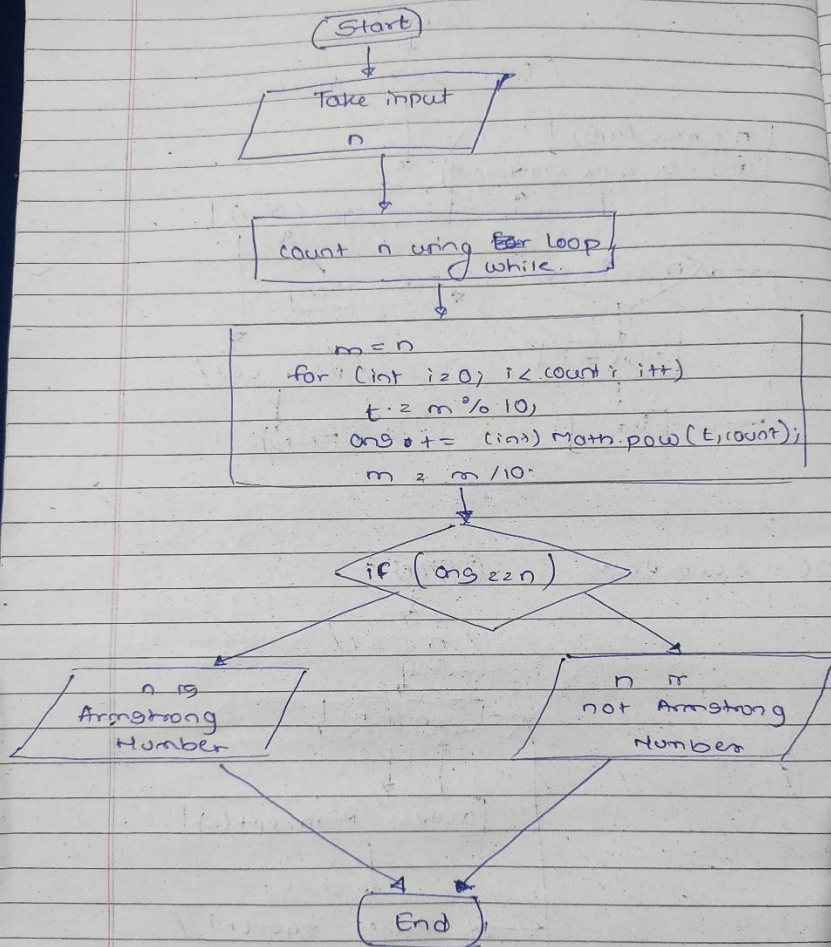 Start
Take input
n
count n using loop
while.
m = n
for (int i=0; i< count; i++)
t = m % 10;
ans += (int) Math.pow(t, count);
m = m /10.
if (ans ==n)
n is
Armstrong
Number
n is
not Armstrong
Number
End